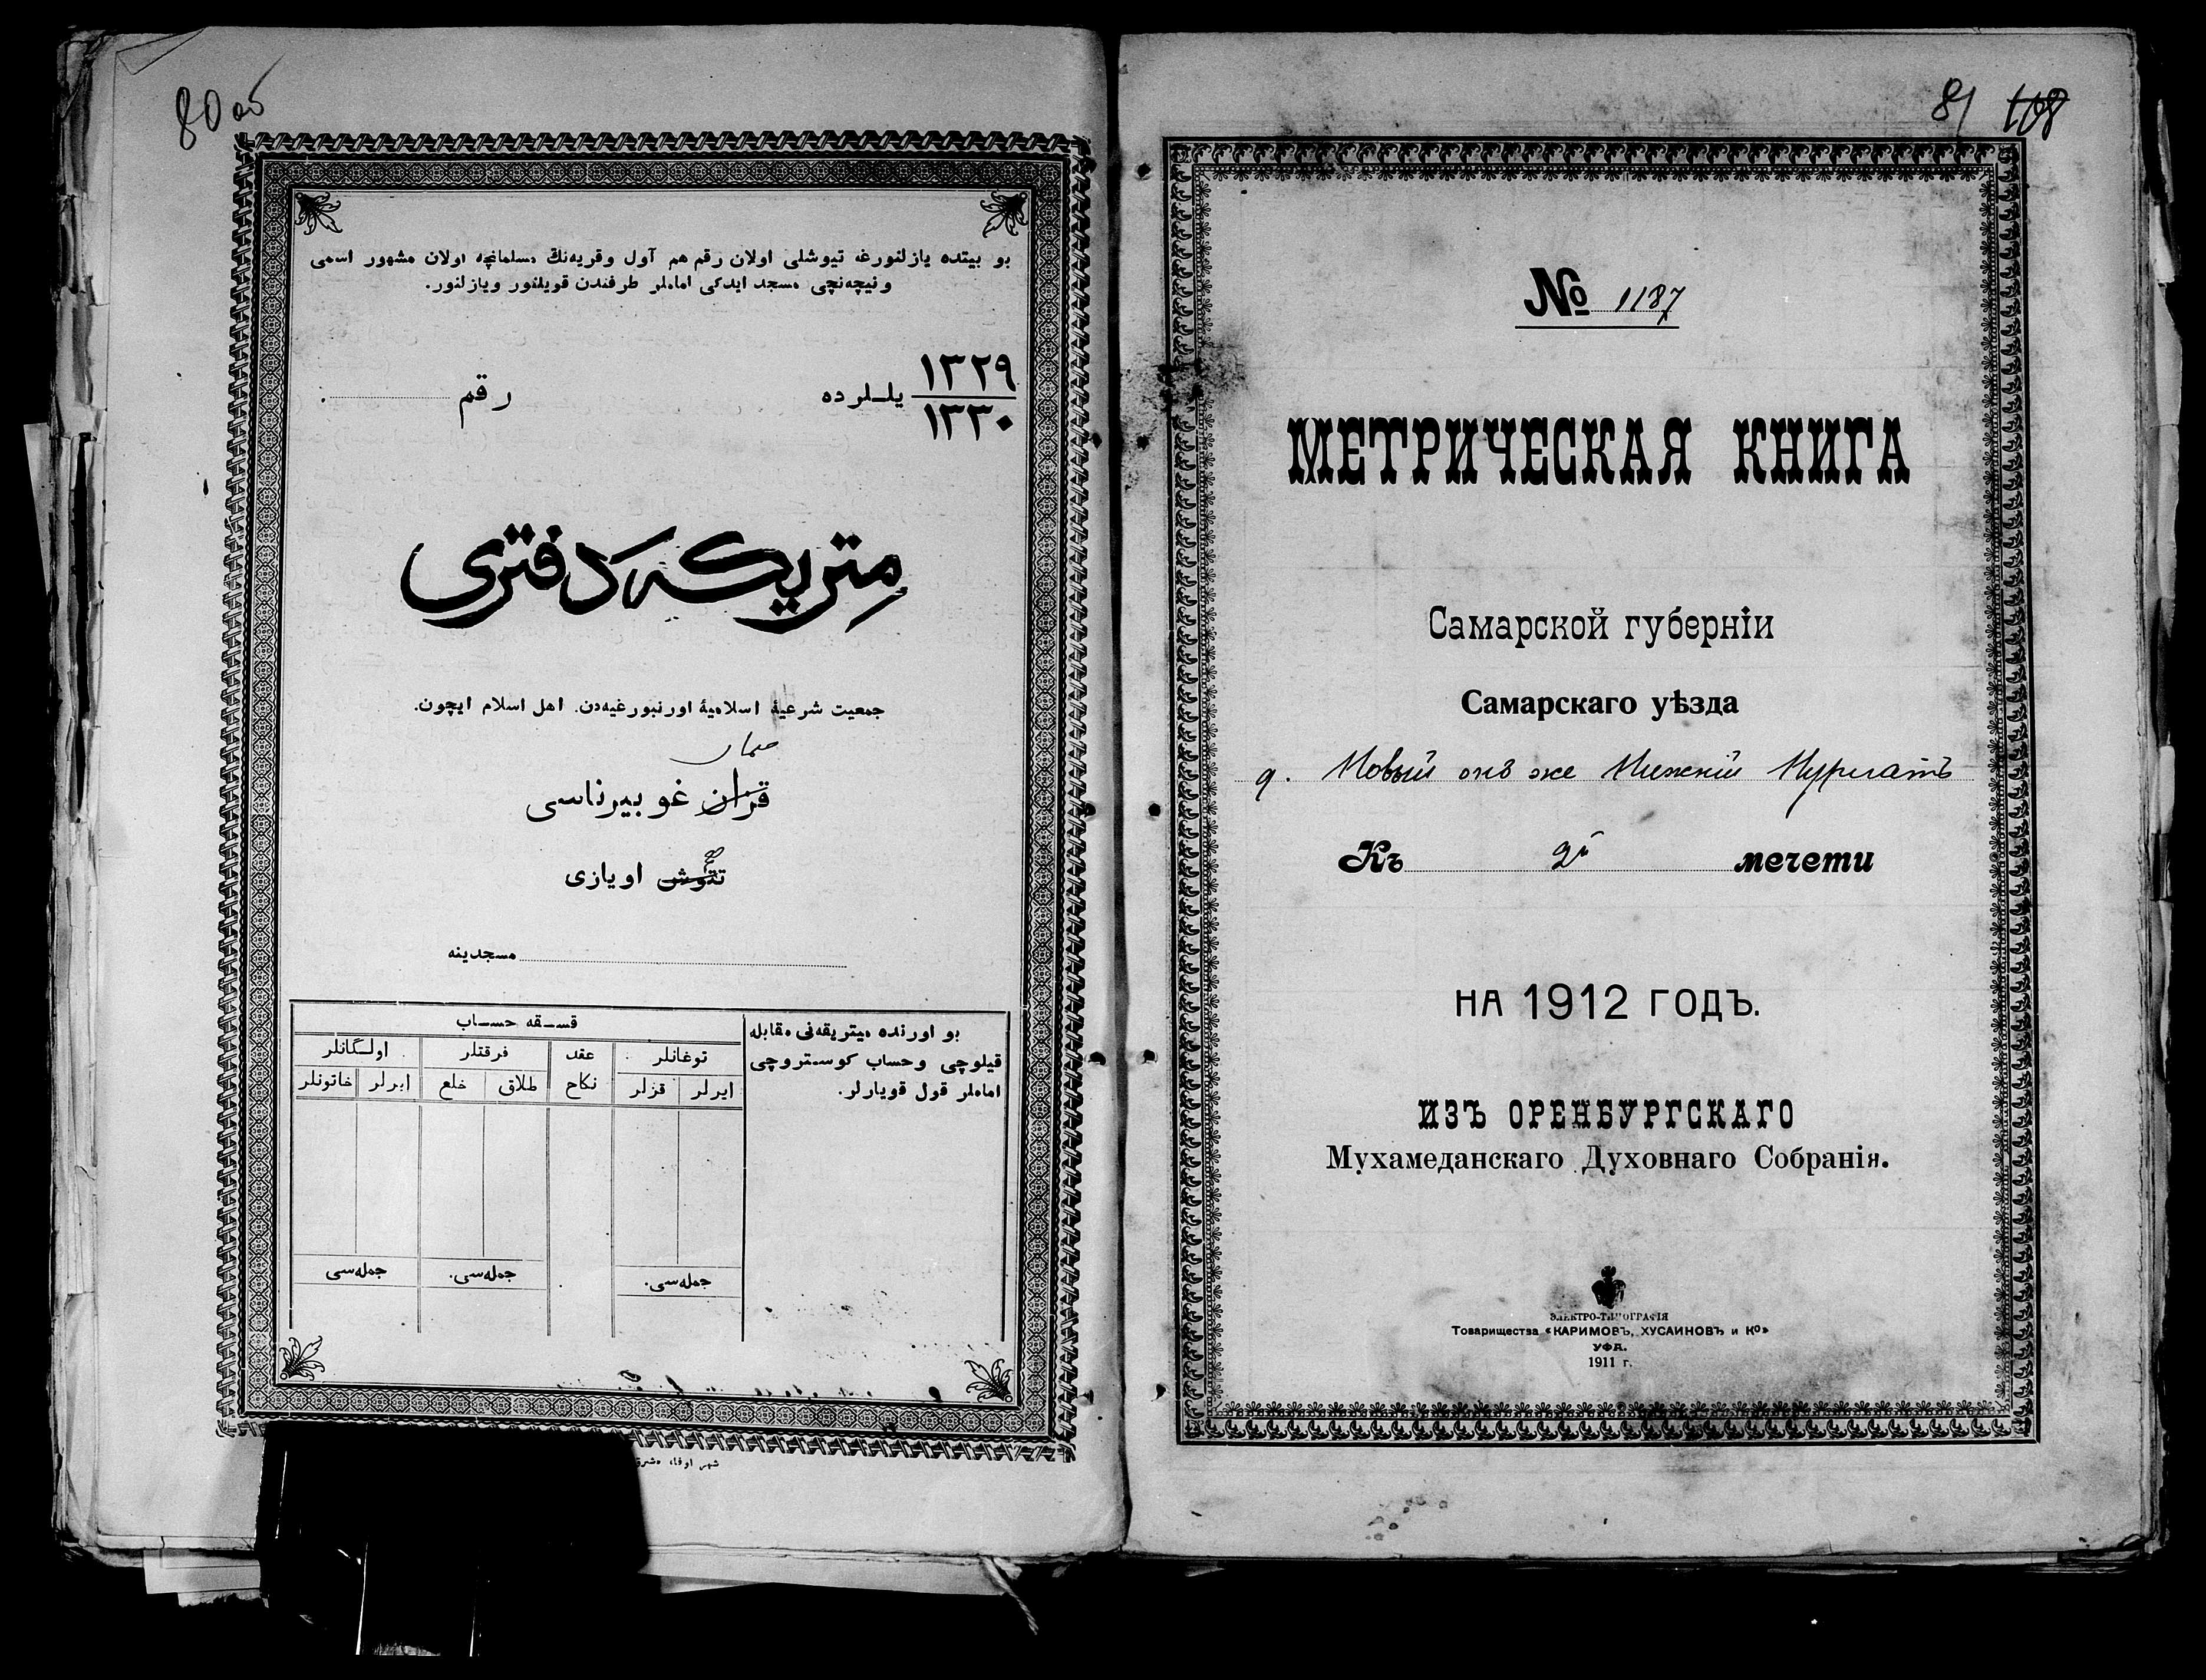 80 об
بو بيتده يازلنورغه تيوشلى اولان رقم هم آول وقريه‌نڭ مسلمانچه اولان مشهور اسمى
ونيچه‌نچى مسجد ايدكى اماملر طرفندن قويلنور ويازلنور.
١٣٢٩
١٣٣٠
يللرده
رقم
متريكه دفترى
جمعيت شرعيهٔ اسلاميهٔ اورنبورغيه‌دن. اهل اسلام ايچون.
قزان غوبيرناسى
تتوش اويازى
مسجدينه
بو اورنده ميتريقه‌نى مقابله
قيلوچى وحساب كوستروچى
اماملر قول قويارلر.
قسقه حساب
توغانلر عقد فرقتلر اولگانلر
ايرلر قزلر نكاح طلاق خلع ايرلر خاتونلر
جمله‌سى. جمله‌سى. جمله‌سى
شهر اوفا، مشرق
81 108
№ 1187
МЕТРИЧЕСКАЯ КНИГА
Самарской губерніи
Самарскаго уѣзда
д. Новый онъ же Нижній Нурлатъ
Къ 2й мечети
НА 1912 ГОДЪ.
ИЗЪ ОРЕНБУРГСКАГО
Мухамеданскаго Духовнаго Собранія.
ЭЛЕКТРО-ТИПОГРАФІЯ
Товарищества «КАРИМОВЪ, ХУСАИНОВЪ и К⁰»
УФА.
1911 г.